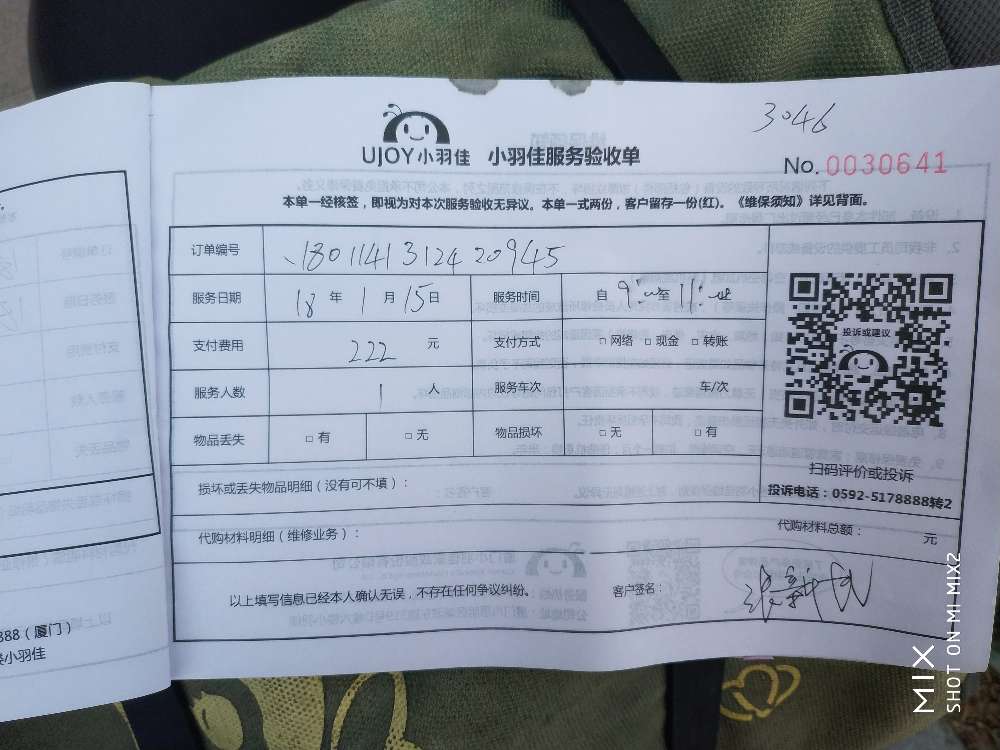 3046
UJOY小羽佳 小羽佳服务验收单
No. 0030641
本单一经核签，即视为对本次服务验收无异议。本单一式两份，客户留存一份(红)。《维保须知》详见背面。
订单编号 1801141312420945
服务日期 18 年 1 月 15 日 服务时间 自 9:00 至 11:00
支付费用 222 元 支付方式 □ 网络 □ 现金 □ 转账
服务人数 1 人 服务车次 车/次
物品丢失 □ 有 □ 无 物品损坏 □ 无 □ 有
投诉或建议
扫码评价或投诉
投诉电话：0592-5178888转2
损坏或丢失物品明细（没有可不填）：
代购材料明细（维修业务）： 代购材料总额： 元
以上填写信息已经本人确认无误，不存在任何争议纠纷。 客户签名：
888（厦门）
小羽佳
MIX
SHOT ON MI MIX2